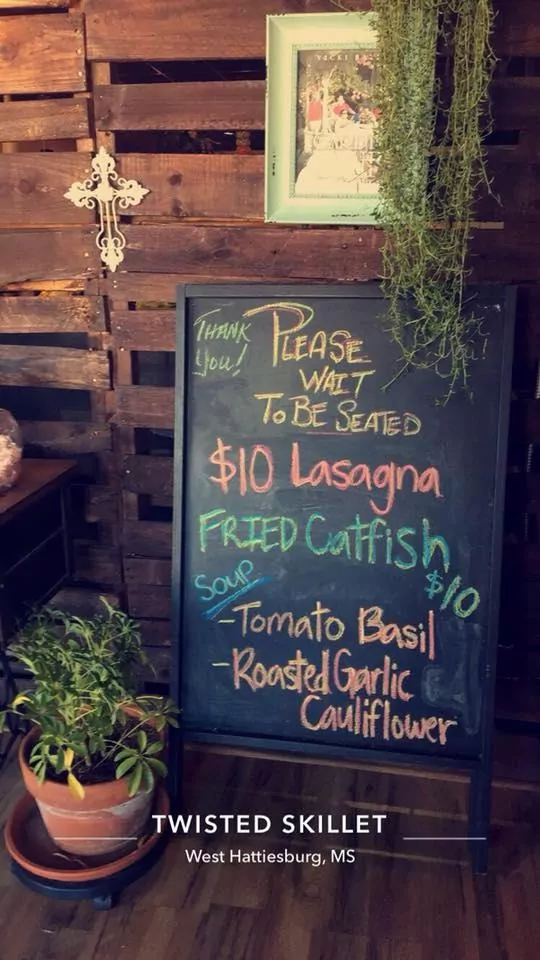 VICKI
THANK
YOU!
PLEASE
WAIT
TO BE SEATED
$10 Lasagna
FRIED Catfish
$10
Soup
-Tomato Basil
-Roasted Garlic
Cauliflower
TWISTED SKILLET
West Hattiesburg, MS